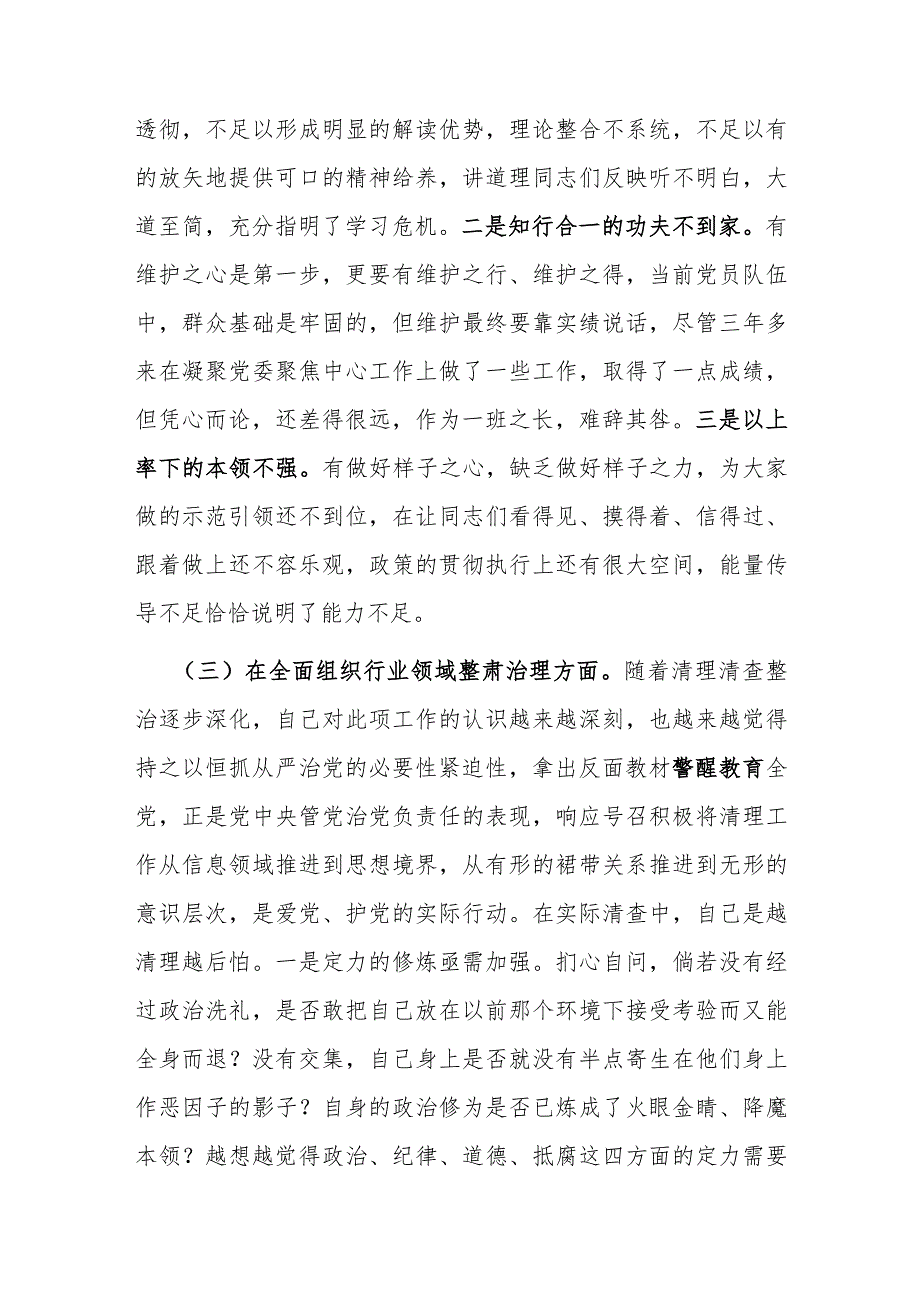 透彻，不足以形成明显的解读优势，理论整合不系统，不足以有
的放矢地提供可口的精神给养，讲道理同志们反映听不明白，大
道至简，充分指明了学习危机。二是知行合一的功夫不到家。有
维护之心是第一步，更要有维护之行、维护之得，当前党员队伍
中，群众基础是牢固的，但维护最终要靠实绩说话，尽管三年多
来在凝聚党委聚焦中心工作上做了一些工作，取得了一点成绩，
但凭心而论，还差得很远，作为一班之长，难辞其咎。三是以上
率下的本领不强。有做好样子之心，缺乏做好样子之力，为大家
做的示范引领还不到位，在让同志们看得见、摸得着、信得过、
跟着做上还不容乐观，政策的贯彻执行上还有很大空间，能量传
导不足恰恰说明了能力不足。
（三）在全面组织行业领域整肃治理方面。随着清理清查整
治逐步深化，自己对此项工作的认识越来越深刻，也越来越觉得
持之以恒抓从严治党的必要性紧迫性，拿出反面教材警醒教育全
党，正是党中央管党治党负责任的表现，响应号召积极将清理工
作从信息领域推进到思想境界，从有形的裙带关系推进到无形的
意识层次，是爱党、护党的实际行动。在实际清查中，自己是越
清理越后怕。一是定力的修炼亟需加强。扪心自问，倘若没有经
过政治洗礼，是否敢把自己放在以前那个环境下接受考验而又能
全身而退？没有交集，自己身上是否就没有半点寄生在他们身上
作恶因子的影子？自身的政治修为是否已炼成了火眼金睛、降魔
本领？越想越觉得政治、纪律、道德、抵腐这四方面的定力需要